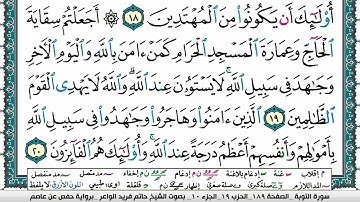 أُوْلَـٰٓئِكَ أَن يَكُونُوا۟ مِنَ ٱلْمُهْتَدِينَ ١٨ ۞ أَجَعَلْتُمْ سِقَايَةَ
ٱلْحَآجِّ وَعِمَارَةَ ٱلْمَسْجِدِ ٱلْحَرَامِ كَمَنْ ءَامَنَ بِٱللَّهِ وَٱلْيَوْمِ ٱلْـَٔاخِرِ
وَجَـٰهَدَ فِى سَبِيلِ ٱللَّهِ ۚ لَا يَسْتَوُۥنَ عِندَ ٱللَّهِ ۗ وَٱللَّهُ لَا يَهْدِى ٱلْقَوْمَ
ٱلظَّـٰلِمِينَ ١٩ ٱلَّذِينَ ءَامَنُوا۟ وَهَاجَرُوا۟ وَجَـٰهَدُوا۟ فِى سَبِيلِ ٱللَّهِ
بِأَمْوَٰلِهِمْ وَأَنفُسِهِمْ أَعْظَمُ دَرَجَةً عِندَ ٱللَّهِ ۚ وَأُو۟لَـٰٓئِكَ هُمُ ٱلْفَآئِزُونَ ٢٠
سورة التوبة - صفحة ١٨٩ - الجزء ١٠ - بصوت الشيخ حاتم فريد الواعر - رواية حفص عن عاصم